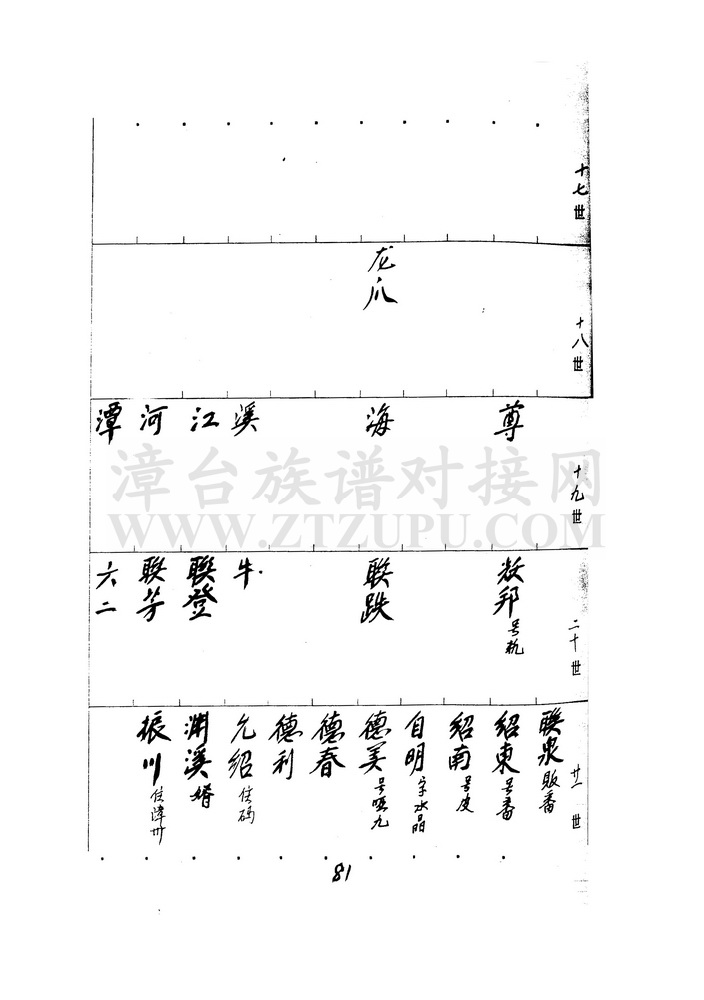 十七世
十八世
龙爪
十九世
尊
海
溪
江
河
潭
二十世
敦邦号杭
联跌
牛
联登
联芳
六二
廿一世
联泉贩番
绍东号番
绍南号皮
自明字水晶
德美号哑九
德春
德利
允绍住码
渊溪婿
振川住漳州
81
漳台族谱对接网
WWW.ZTZUPU.COM